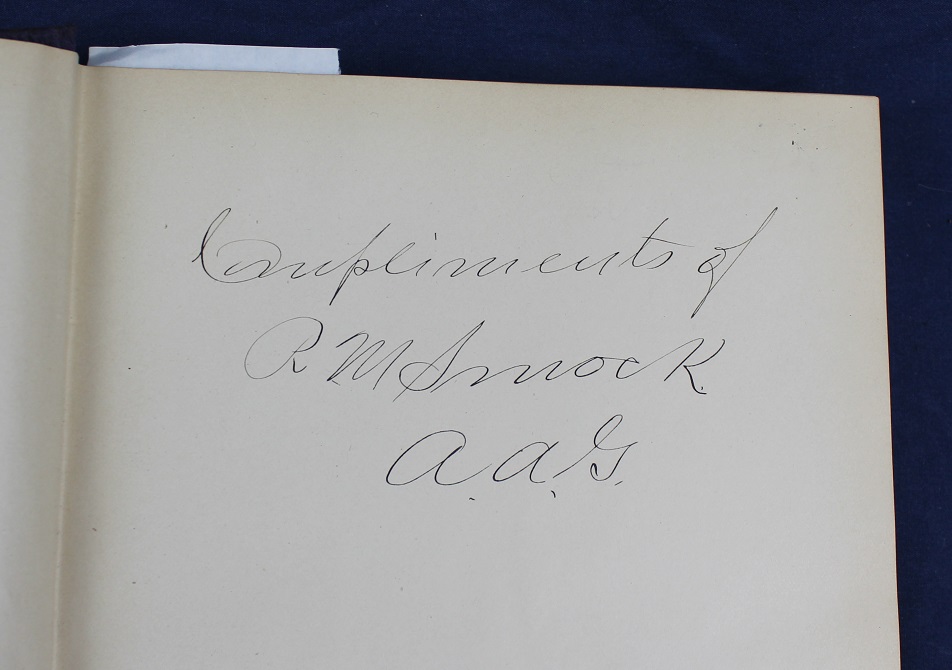 Compliments of
R M Smock.
A. A. G.